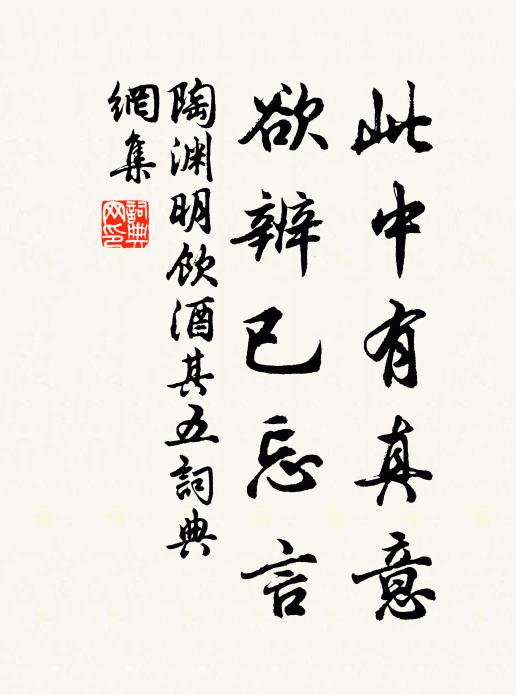 此中有真意
欲辨已忘言
陶渊明饮酒其五詞典
網集
詞典网印